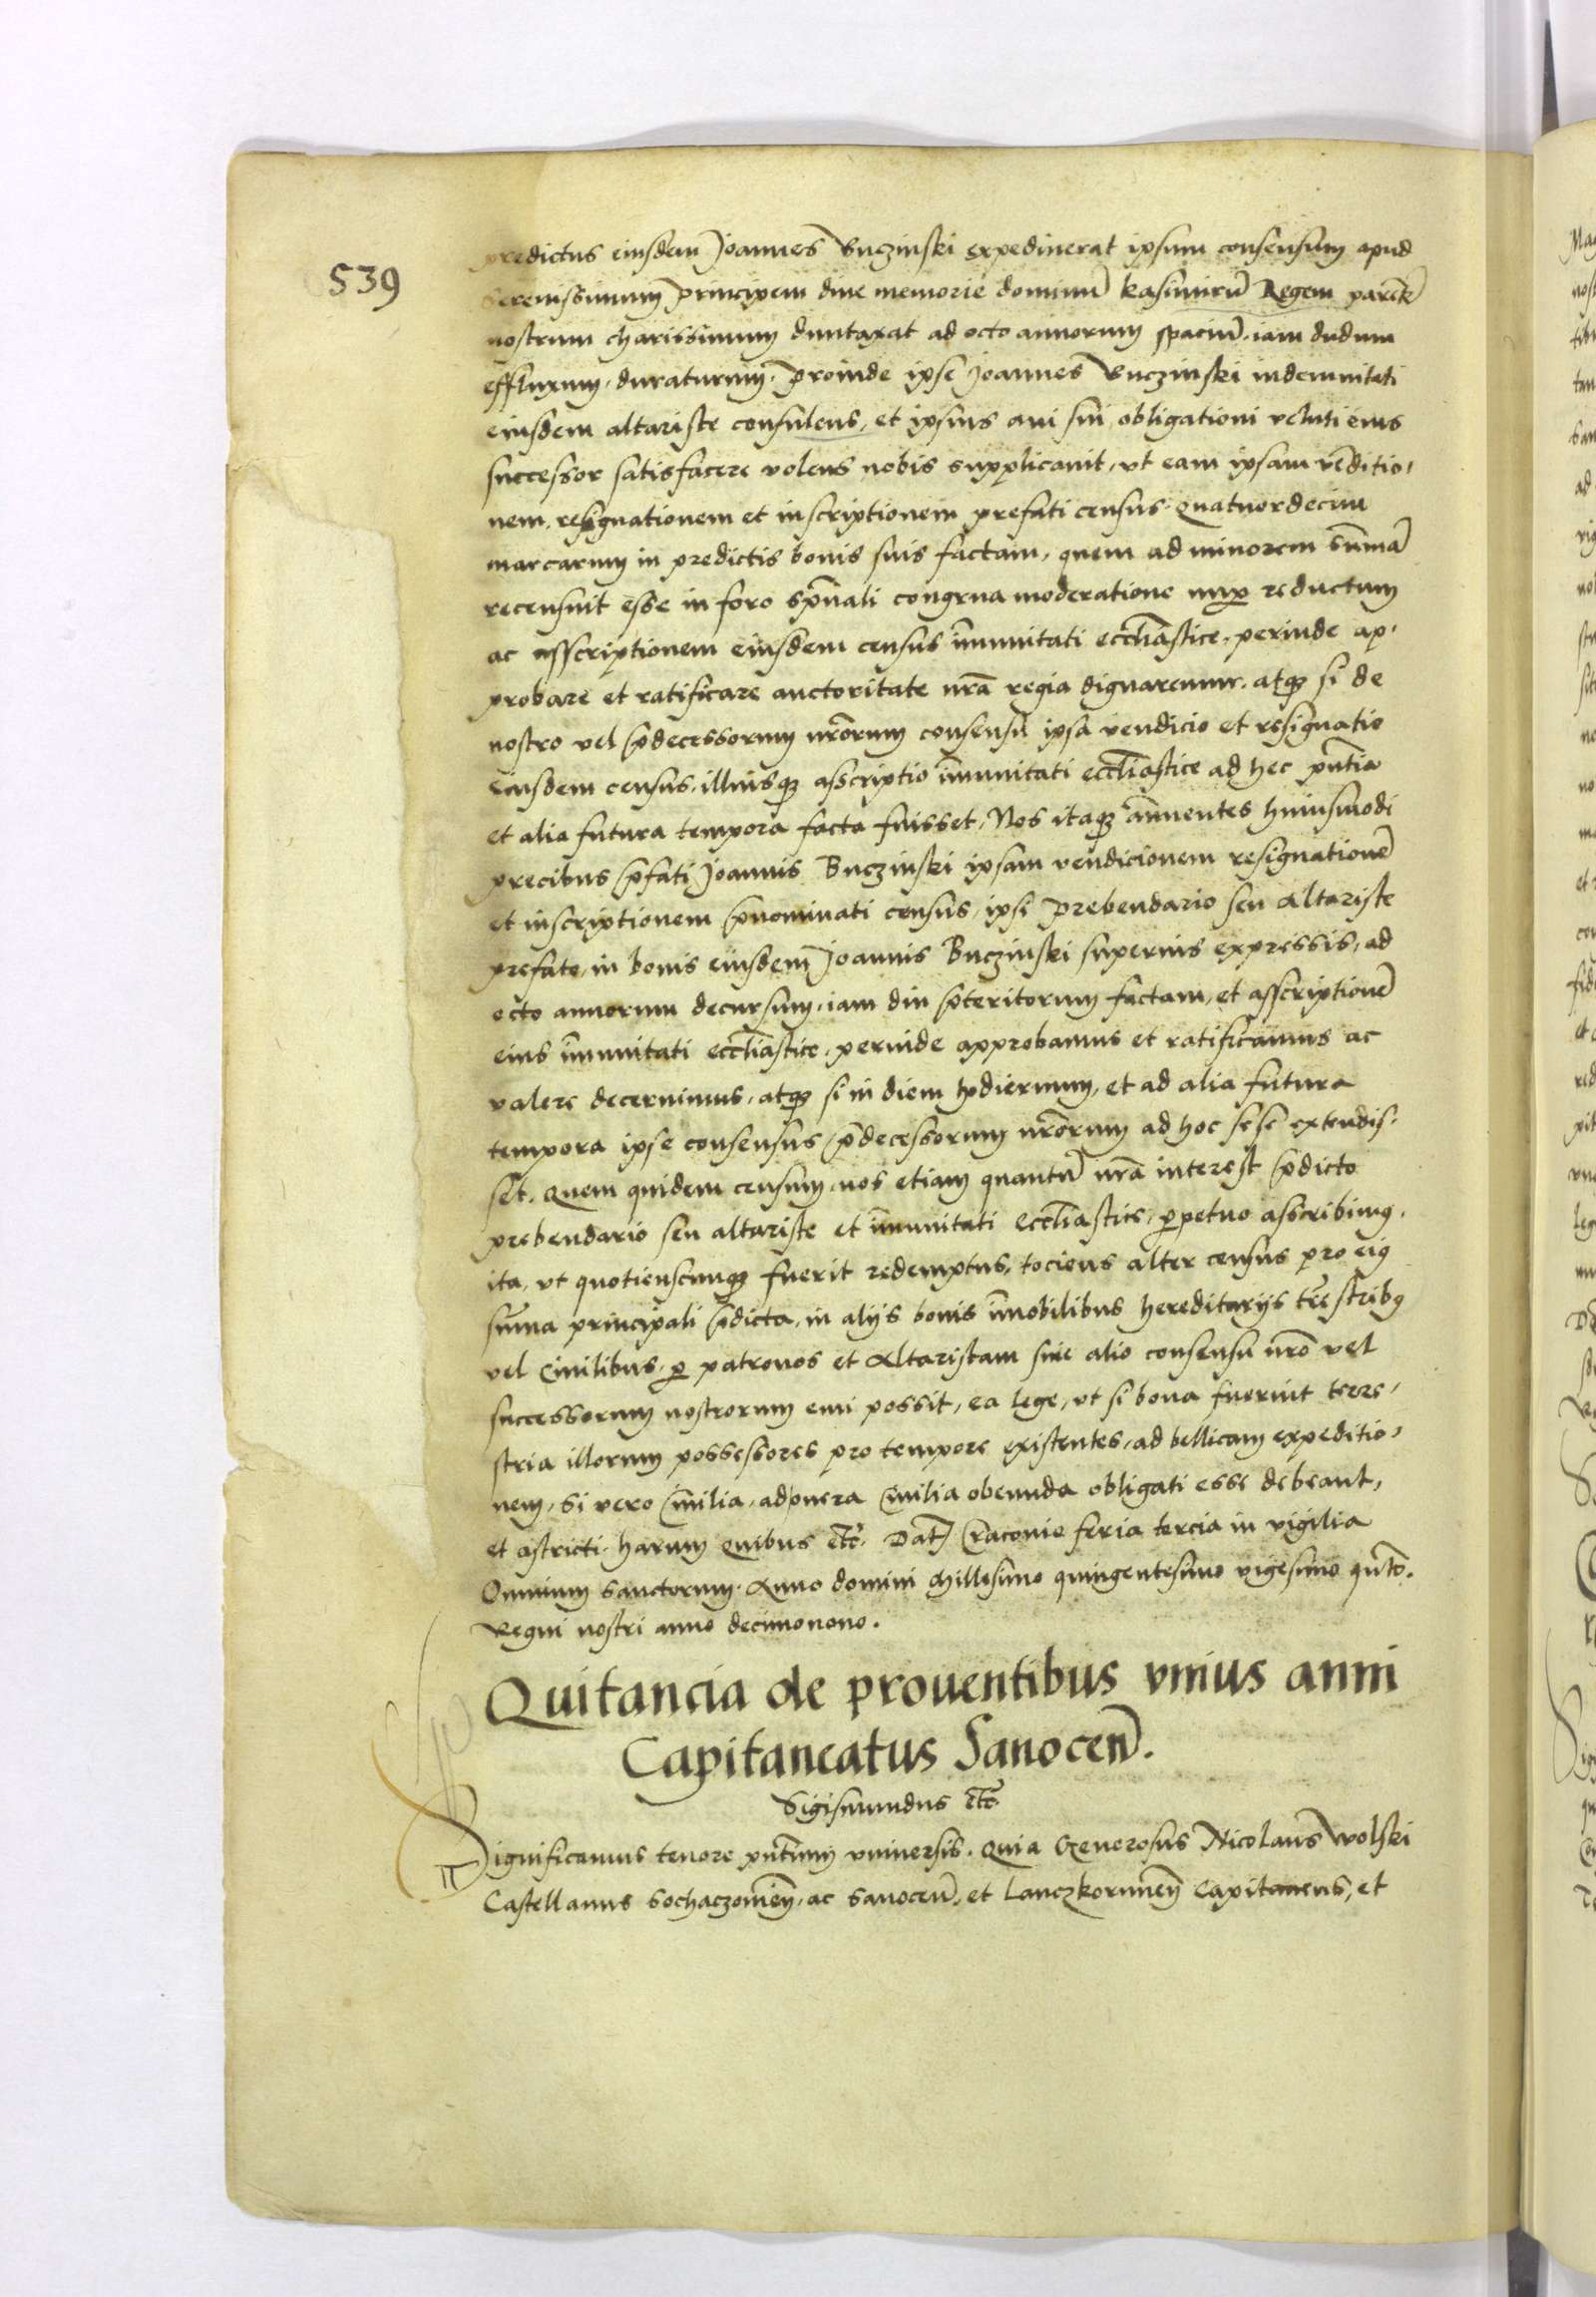 539
predictus eiusdem Joannes Buczinski expediuerat ipsum consensum apud
Serenissimum principem diue memorie dominū Kasimirū Regem parentē
nostrum charissimum duntaxat ad octo annorum spaciū iam dudum
effluxum, duraturum. Proinde ipse Joannes Buczinski indemnitati
eiusdem altariste consulens, et ipsius aui sui obligationi veluti eius
successor satisfacere volens nobis supplicauit, vt eam ipsam venditio-
nem, resignationem et inscriptionem prefati census quatuordecim
marcarum in predictis bonis suis factam, quem ad minorem summā
recensuit esse in foro sp̄uali congrua moderatione nup reductum
ac asscriptionem eiusdem census īmunitati eccl̄iastice, perinde ap-
probare et ratificare auctoritate nr̄a regia dignaremur, atqꝫ si de
nostro vel p̄decessorum nr̄orum consensu ipsa vendicio et resignatio
eiusdem census, illiusqꝫ asscriptio īmunitati eccl̄iastice ad hec pn̄tia
et alia futura tempora facta fuisset, Nos itaqꝫ annuentes huiusmodi
precibus p̄fati Joannis Buczinski ipsam vendicionem resignationē
et inscriptionem p̄nominati census, ipsi prebendario seu Altariste
prefato, in bonis eiusdem Joannis Buczinski superius expressis, ad
octo annorum decursum, iam diu p̄teritorum factam, et asscriptionē
eius īmunitati eccl̄iastice, perinde approbamus et ratificamus ac
valere decernimus, atqꝫ si in diem hodiernum, et ad alia futura
tempora ipse consensus p̄decessorum nr̄orum ad hoc sese extendis-
set. Quem quidem censum, nos etiam quantū nr̄a interest p̄dicto
prebendario seu altariste et īmunitati eccl̄iastice, ꝑpetuo asscribimꝰ.
ita, vt quotienscunqꝫ fuerit redemptus, tociens alter census pro eiꝰ
summa principali p̄dicta, in alijs bonis īmobilibus hereditarijs terrestribꝰ
vel Ciuilibus, ꝑ patronos et Altaristam sine alio consensu nr̄o vel
successorum nostrorum emi possit, ea lege, vt si bona fuerint terre-
stria illorum possessores pro tempore existentes, ad bellicam expeditio-
nem, si vero Ciuilia, ad onera Ciuilia obeunda obligati esse debeant,
et astricti. harum Quibus etc. Dat Cracouie feria tercia in vigilia
Omnium Sanctorum. Anno domini Millesimo quingentesimo vigesimo quīto.
Regni nostri anno decimonono.
Quitancia de prouentibus vnius anni
Capitaneatus Sanocen̄.
Sigismundus etc
Significamus tenore pn̄tium vniuersis. Quia Generosus Nicolaus Wolski
Castellanus Sochaczouien̄, ac Sanocen̄, et Lanczkorunen̄ Capitaneus, et